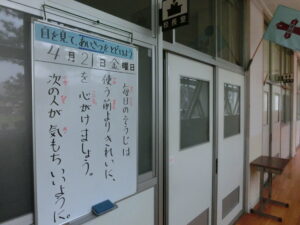 目を見て、あいさつをとどけよう
4月21日金曜日
毎日のそうじは
使う前よりきれいに、
を心がけましょう。
次の人が気もちいいように。